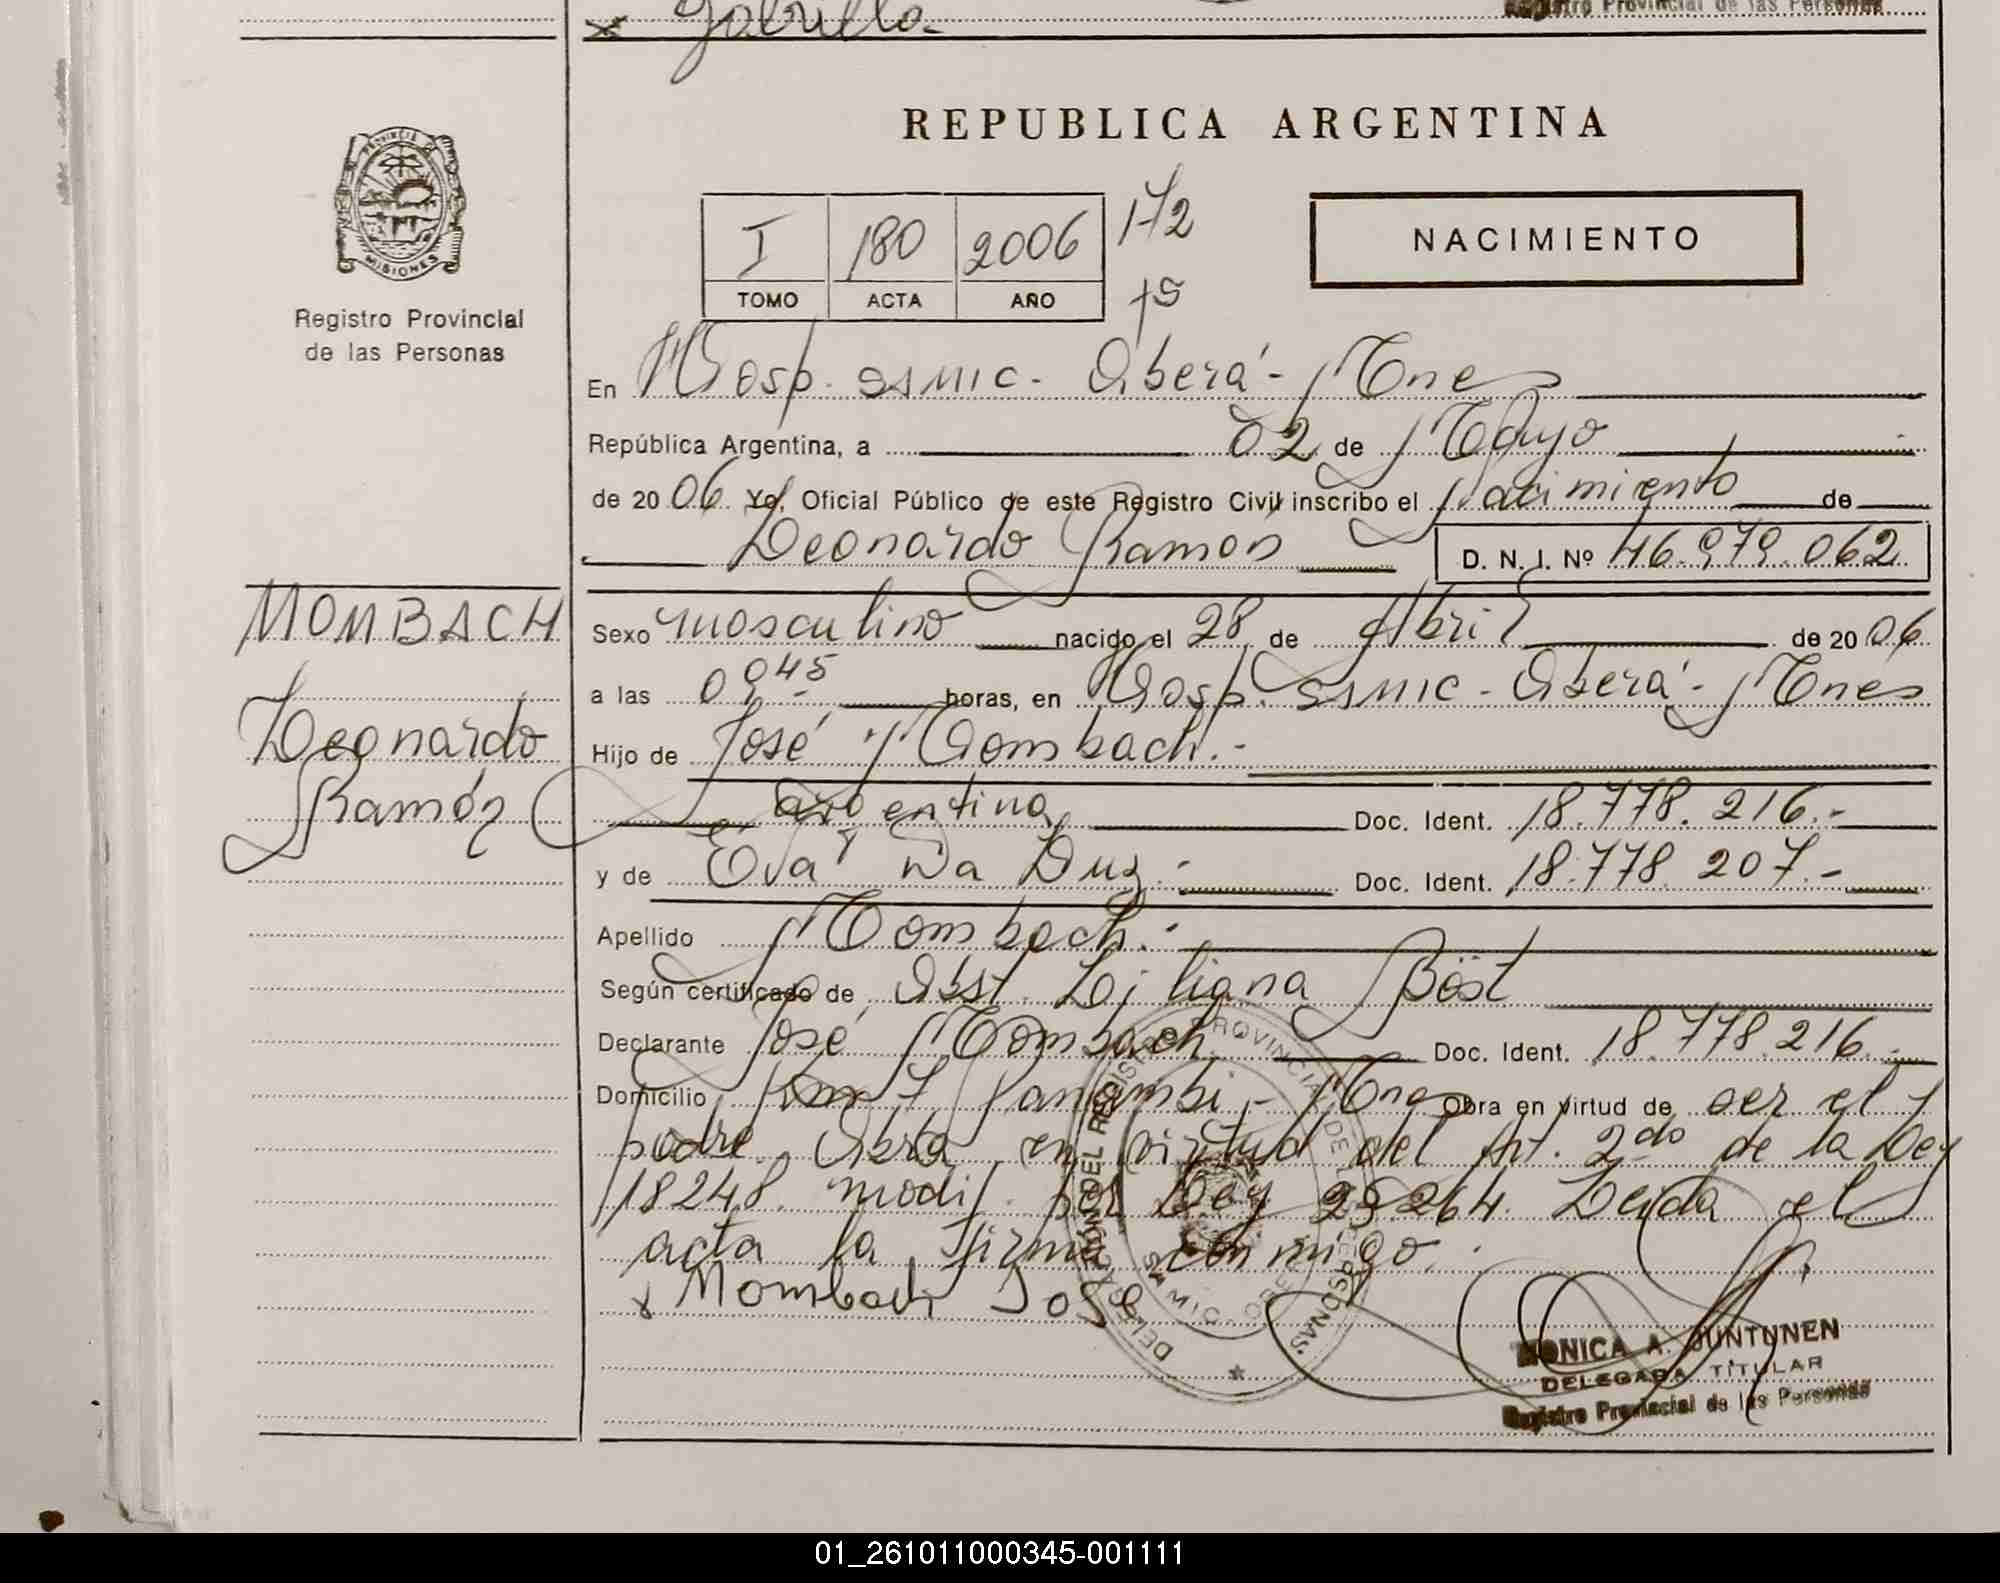 x Gabriela
Registro Provincial de las Personas
REPUBLICA ARGENTINA
PROVINCIA
MISIONES
Registro Provincial
de las Personas
I 180 2006 172
TOMO ACTA AÑO
NACIMIENTO
En Hosp. SAMIC - Oberá - Mnes
República Argentina, a 02 de Mayo
de 2006 Yo, Oficial Público de este Registro Civil inscribo el Nacimiento de
Leonardo Ramón D. N. I. Nº 46.979.062
MOMBACH
Leonardo
Ramón
Sexo masculino nacido el 28 de Abril de 2006
a las 0045 horas, en Hosp. SAMIC - Oberá - Mnes
Hijo de José Mombach.-
argentina Doc. Ident. 18.778.216.-
y de Eva Da Luz.- Doc. Ident. 18.778.207.-
Apellido Mombach.-
Según certificado de Obst. Liliana Böst
Declarante José Mombach Doc. Ident. 18.778.216.-
Domicilio Km 7 Panambi - Mnes Obra en virtud de ser el
padre. Obra en virtud del Art. 2do de la Ley
18248 modif. por Ley 23264. Leída el
acta la firma conmigo.
x Mombach José
DELEGACION DEL REGISTRO PROVINCIAL DE LAS PERSONAS
SAMIC
MONICA A. JUNTUNEN
DELEGADA TITULAR
Registro Provincial de las Personas
01_261011000345-001111